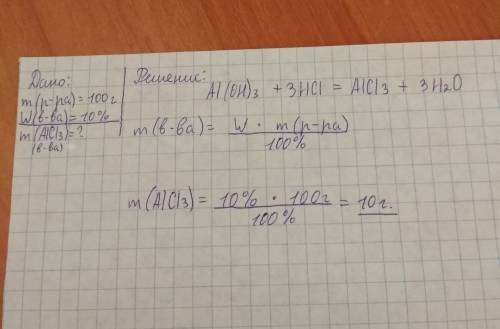 Дано:
m(р-ра)=100г
W(в-ва)=10%
m(AlCl3)=?
(в-ва)
Решение:
Al(OH)3 + 3HCl = AlCl3 + 3H2O
m(в-ва)= W · m(р-ра)
100%
m(AlCl3)= 10% · 100г = 10г.
100%